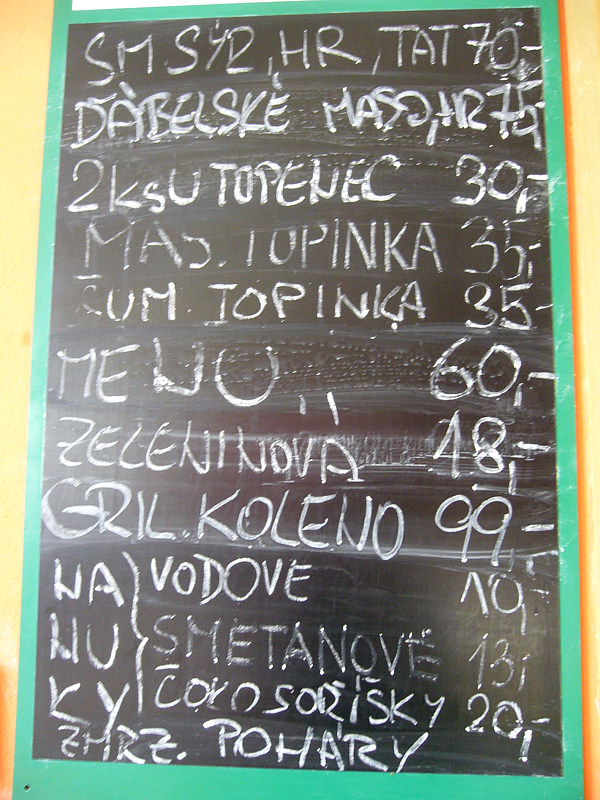 SM SÝR, HR, TAT 70,-
ĎÁBELSKÉ MASO, HR 75,-
2KS UTOPENEC 30,-
MAS. TOPINKA 35,-
ŠUM. TOPINKA 35-
MENU 60,-
ZELENINOVÁ 18,-
GRIL. KOLENO 99,-
NA VODOVÉ 10,-
NU SMETANOVÉ 13,
KY ČOKOSOŘÍŠKY 20,-
ZMRZ. POHÁRY